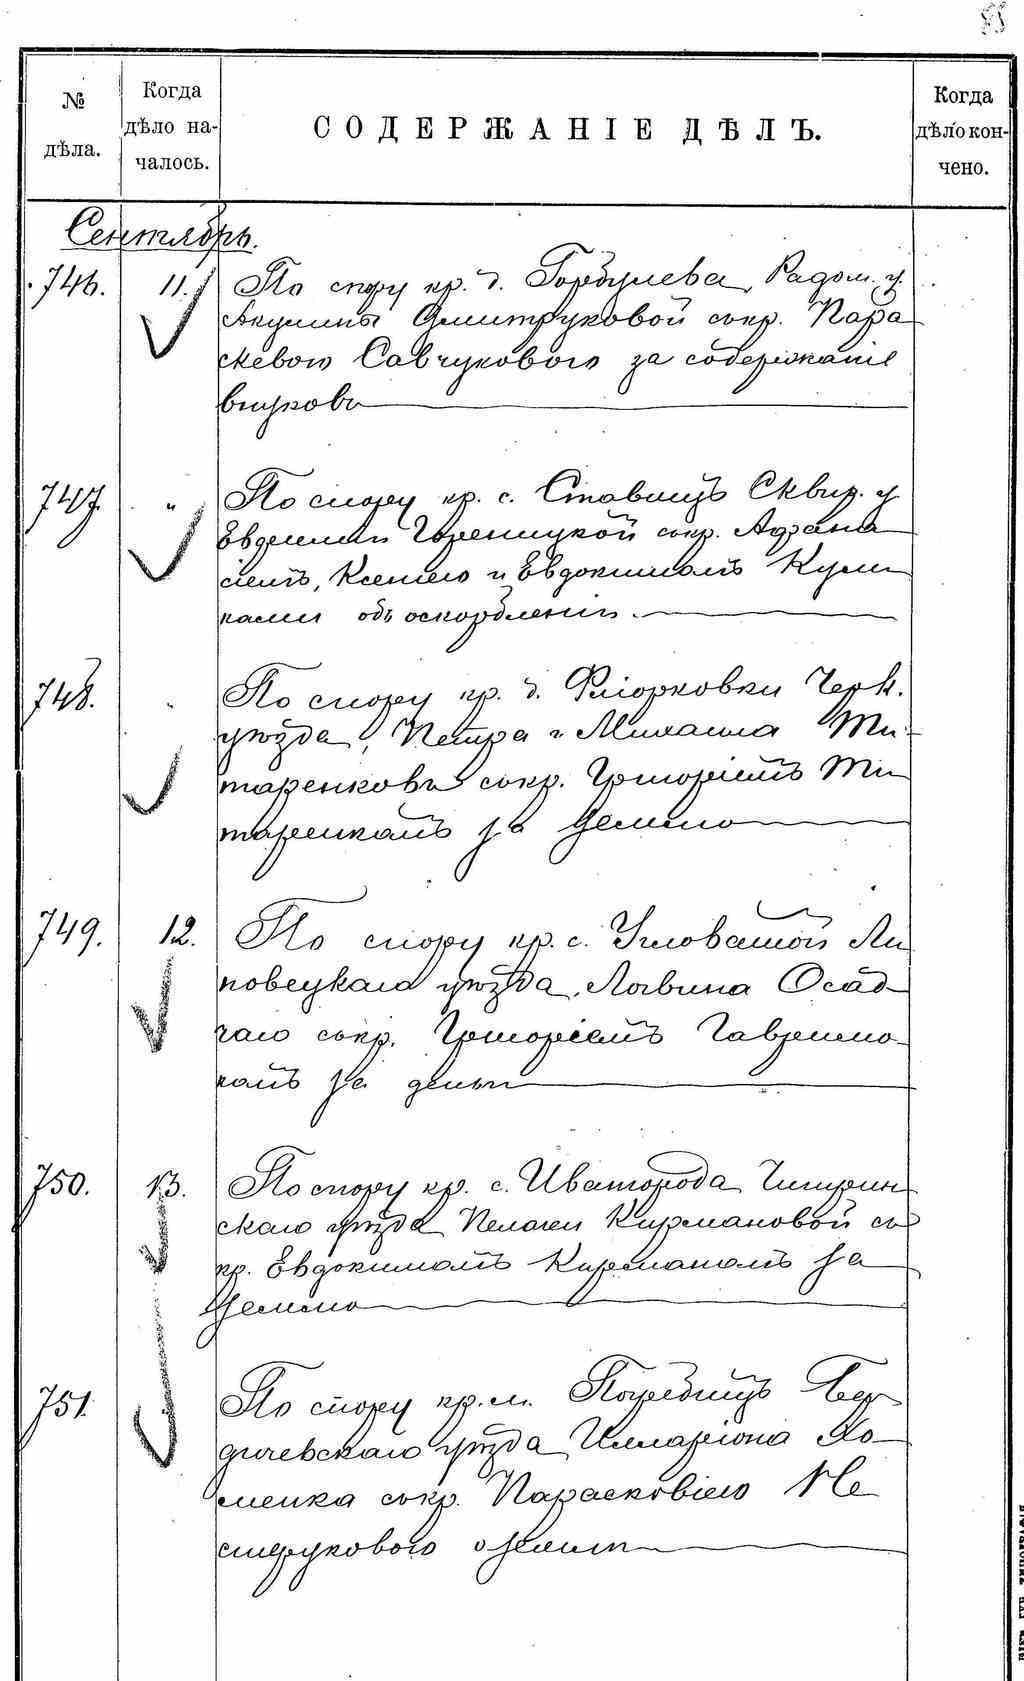 № дѣла.
Когда дѣло началось.
СОДЕРЖАНІЕ ДѢЛЪ.
Когда дѣло кончено.
Сентябрь.
746. 11. По спору кр. д. Горбулева, Радом. у.
Акулины Дмитруковой съ кр. Пара
скевою Савчуковою за содержаніе
внуковъ
747. " По спору кр. с. Ставищъ Сквир. у
Евдокіи Гореницкой съ кр. Афана
сіемъ, Ксенією и Евдокимомъ Кули
ками объ оскорбленіи.
748. " По спору кр. д. Фліорковки Черк.
уѣзда, Петра и Михаила Ти-
таренковъ съ кр. Григоріемъ Ти
таренкомъ за землю
749. 12. По спору кр. с. Угловатой Ли
повецкаго уѣзда, Логвина Осад-
чаго съ кр. Григоріемъ Гаврилю-
комъ за деньги
750. 13. По спору кр. с. Ивангорода Чигирин
скаго уѣзда Пелагеи Кирмановой съ
кр. Евдокимомъ Кирманомъ за
землю
751. По спору кр. м. Погребищъ Бер-
дичевскаго уѣзда Илларіона Хо-
менка съ кр. Парасковіею Не
стеруковою о землѣ